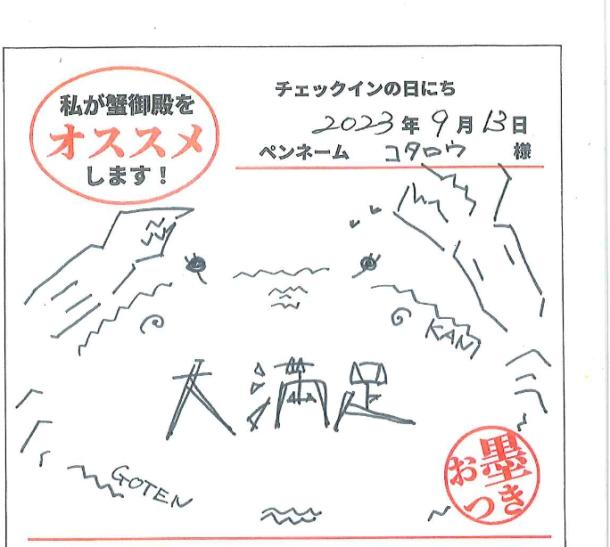 私が蟹御殿を
オススメ
します！
チェックインの日にち
2023年9月13日
ペンネーム コタロウ 様
KANI
大満足
GOTEN
お墨
つき